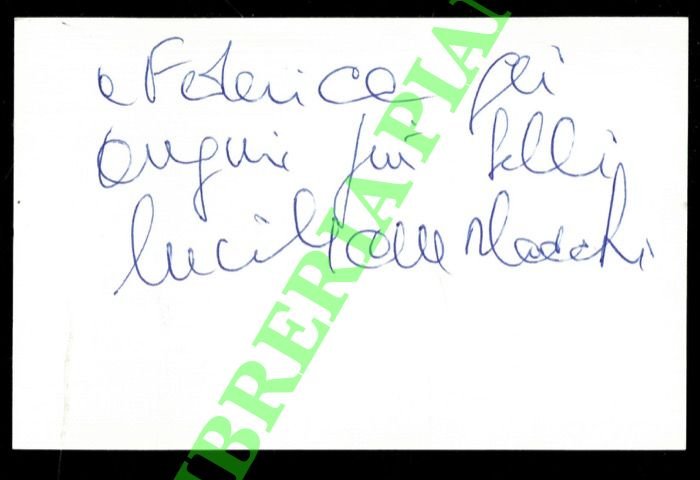 a Federica gli
auguri più belli
Lucilla Morlacchi
LIBRERIA PIANI